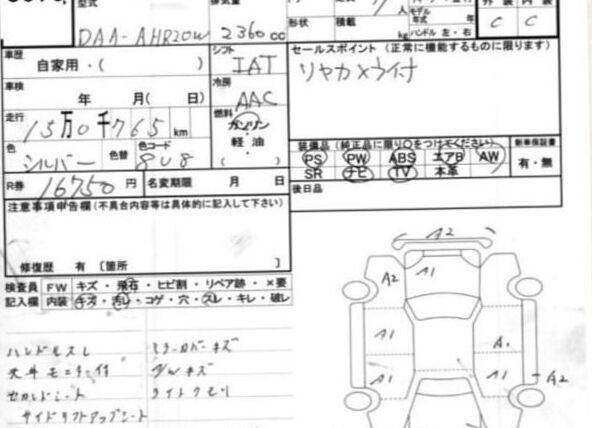 型式
DAA-AHR20W
2360 cc
形状
積載
kg
モデル年式
年
ハンドル 左・右
外装
内装
C
C
車歴
自家用・( )
シフト
IAT
セールスポイント (正常に機能するものに限ります)
リヤカメラ付
車検
年 月( 日)
冷房
AAC
走行
15万0千765km
燃料
ガソリン
軽油
・
色
シルバー
色替
色コード
8U8
装備品(純正品に限り○をつけてください)
PS PW ABS エアB AW
SR ナビ TV 本革
新車保証書
有・無
R券
16750円
名変期限 月 日
後日品
注意事項申告欄(不具合内容等は具体的に記入して下さい)
修復歴 有〔箇所 〕
検査員記入欄
FW キズ・飛石・ヒビ割・リペア跡・×要
内装 キズ・汚れ・コゲ・穴・スレ・キレ・破レ
ハンドルスレ
天井モニター付
セカンドシート
サイドリフトアップシート
ミラーカバーキズ
AWキズ
ライトクモリ
A2
A2
A1
A1
A1
A1
A1
A2